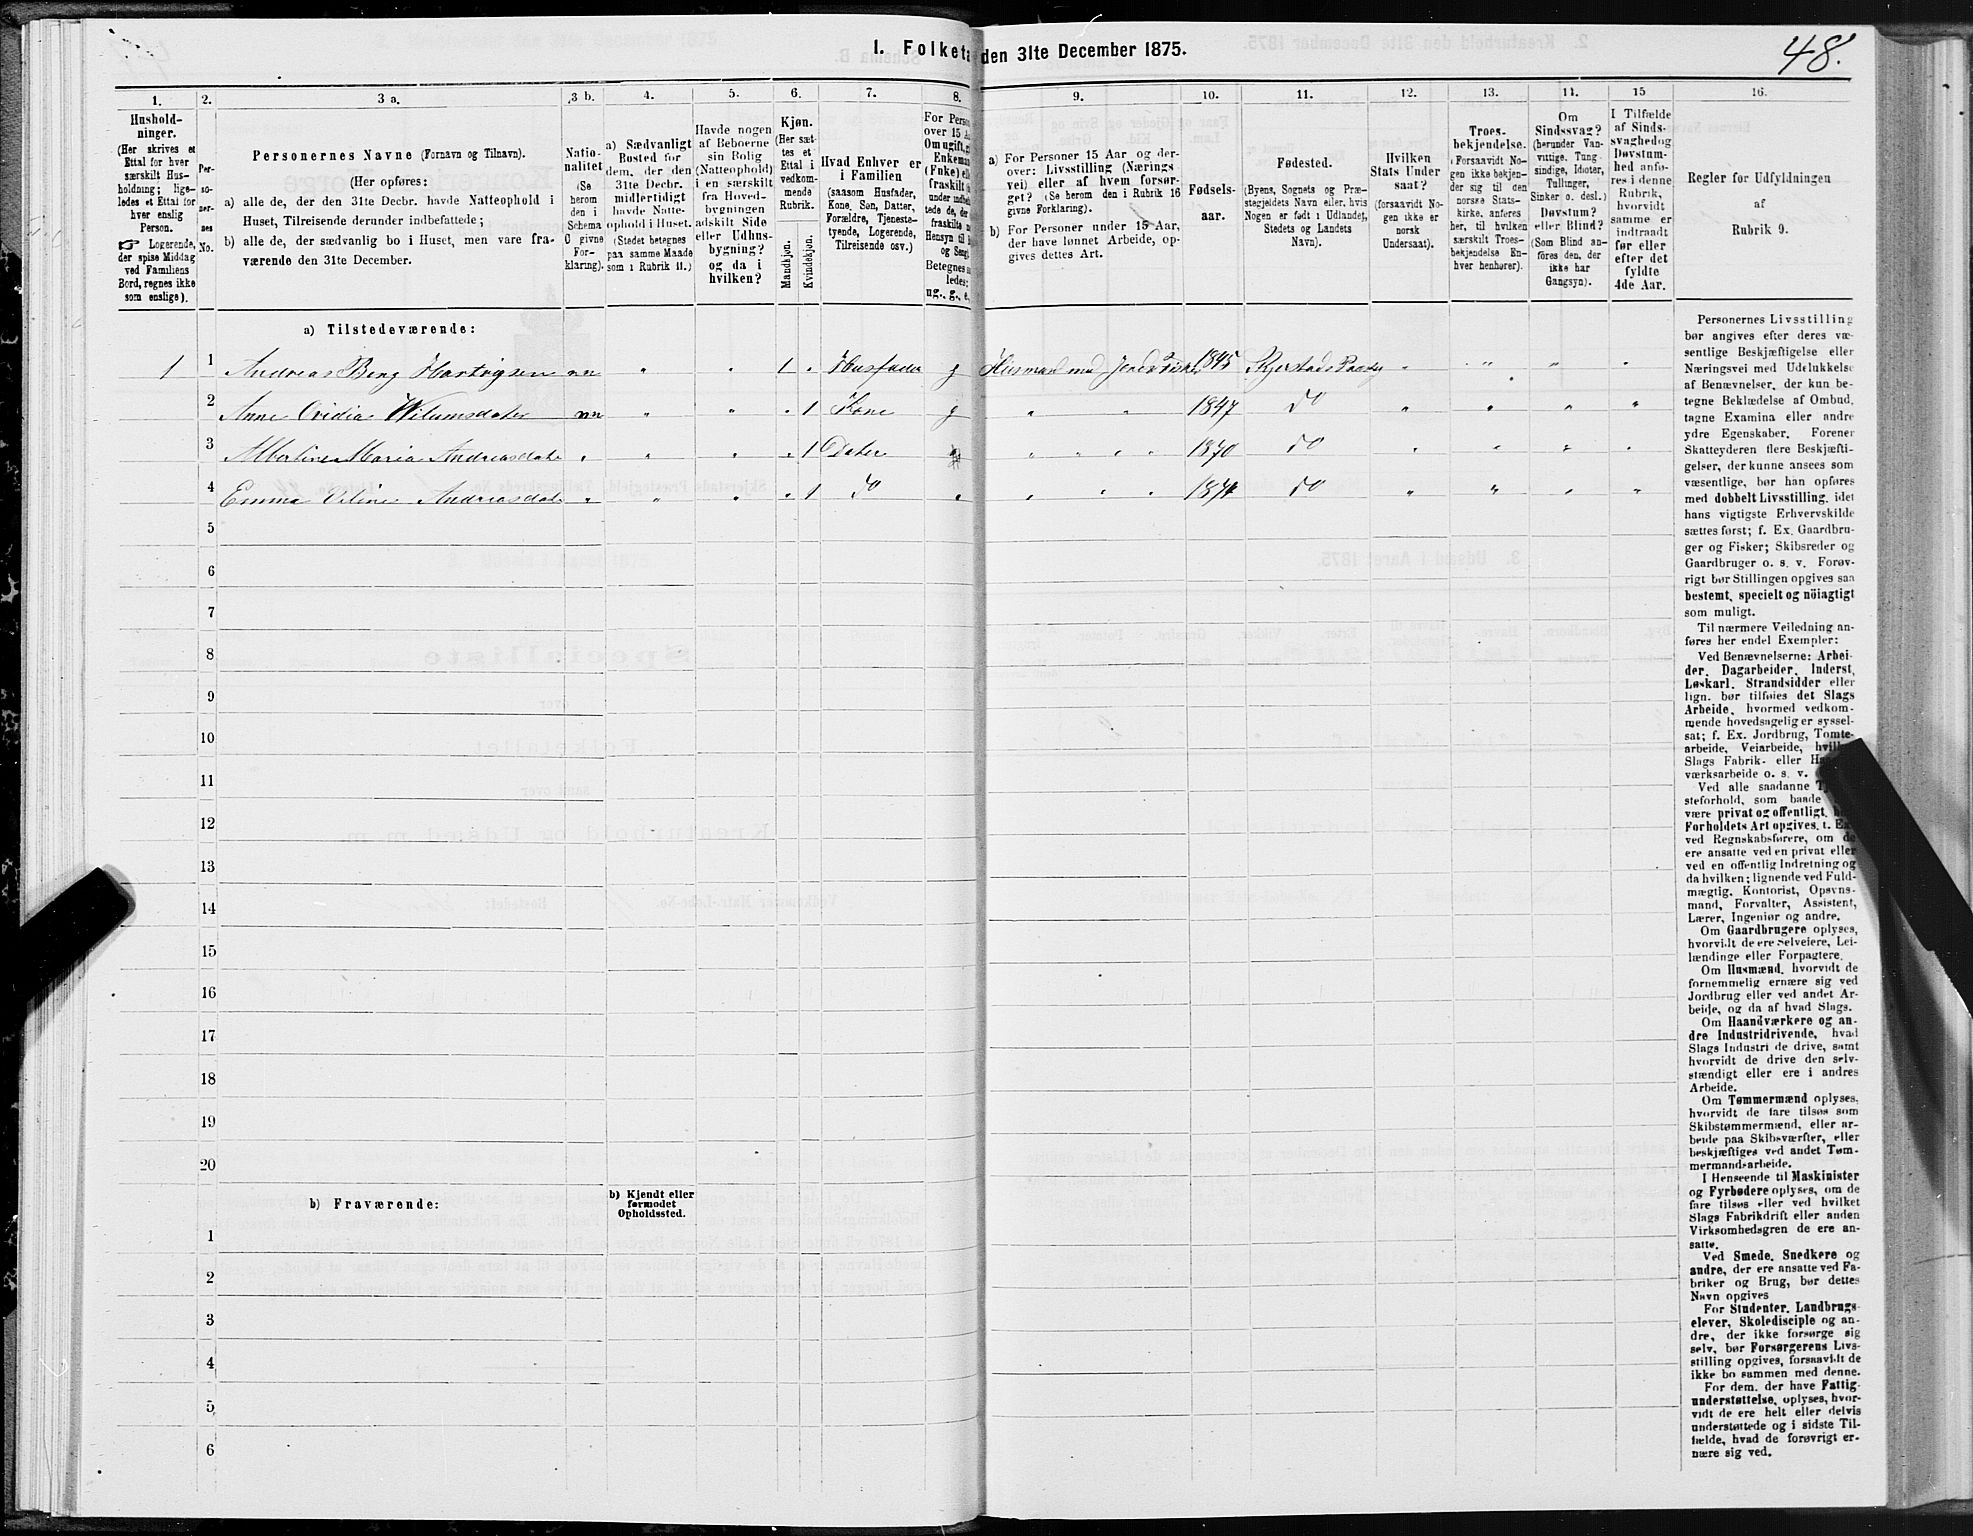 I. Folketa den 31te December 1875.
48.
1. 2. 3 a. 3 b. 4. 5. 6. 7. 8. 9. 10. 11. 12. 13. 14. 15 16.
Hushold-
ninger.
(Her skrives et
Ettal for hver
særskilt Hus-
holdning; lige-
ledes et Ettal for
hver enslig
Person.
☞ Logerende,
der spise Middag
ved Familiens
Bord, regnes ikke
som enslige).
Per-
so-
ner-
ses
No.
Personernes Navne (Fornavn og Tilnavn).
(Her opføres:
a) alle de, der den 31te Decbr. havde Natteophold i
Huset, Tilreisende derunder indbefattede;
b) alle de, der sædvanlig bo i Huset, men vare fra-
værende den 31te December.
Natio-
nalitet
(Se
herom
den i
Schema
C givne
For-
klaring).
a) Sædvanligt
Bosted for
dem, der den
31te Decbr.
midlertidigt
havde Natte-
ophold i Huset.
(Stedet betegnes
paa samme Maade
som i Rubrik 11.)
Havde nogen
af Beboerne
sin Bolig
(Natteophold)
i en særskilt
fra Hoved-
bygningen
adskilt Side
eller Udhus-
bygning?
og da i
hvilken?
Kjøn.
(Her sæt-
tes et
Ettal i
vedkom-
mende
Rubrik.
Mandkjøn.
Kvindekjøn.
Hvad Enhver er
i Familien
(saasom Husfader,
Kone, Søn, Datter,
Forældre, Tjeneste-
tyende, Logerende,
Tilreisende osv.)
For Person
over 15 A
Om ugift, g
Enkeman
(Enke) ell
fraskilt
under indbe
tede de, de
fraskilte
Hensyn til
og Seng
Betegnes
ledes:
ug., g., e.
a) For Personer 15 Aar og der-
over: Livsstilling (Nærings
vei) eller af hvem forsør-
get? (Se herom den i Rubrik 16
givne Forklaring).
b) For Personer under 15 Aar,
der have lønnet Arbeide, op-
gives dettes Art.
Fødsels-
aar.
Fødested.
(Byens, Sognets og Præ-
stegjeldets Navn eller, hvis
Nogen er født i Udlandet,
Stedets og Landets
Navn).
Hvilken
Stats Under
saat?
(forsaavidt No-
gen ikke er
norsk
Undersaat).
Troes-
bekjendelse.
(Forsaavidt No-
gen ikke bekjen-
der sig til den
norske Stats-
kirke, anføres
her, til hvilken
særskilt Troes-
bekjendelse En-
hver henhører).
Om
Sindssvag?
(herunder Van-
vittige, Tung
sindige, Idioter,
Tullinger,
Sinker o. desl.)
Døvstum?
eller Blind?
(Som Blind an-
føres den, der
ikke har
Gangsyn).
I Tilfælde
af Sinds-
svaghed og
Døvstum-
hed anfø-
res i denne
Rubrik,
hvorvidt
samme er
indtraadt
før eller
efter det
fyldte
4de Aar.
Regler før Udfyldningen
af
Rubrik 9.
a) Tilstedeværende:
1 1 Andreas Berg Hartvigsen nn " " 1 " Husfader g Husmand med Jord 1845 Skjerstads Præstg " " " "
2 Anne Ovidia Wilumsdater nn " " " 1 Kone g " " 1847 do " " " "
3 Albertine Maria Andreasdate " " " " 1 Dater " " " " 1870 do " " " "
4 Emma Veline Andreasdat " " " " 1 do " " " " 1874 do " " " "
5
6
7
8
9
10
11
12
13
14
15
16
17
18
19
20
b) Fraværende:
b) Kjendt eller
formodet
Opholdssted.
1
2
3
4
5
6
Personernes Livsstilling
bør angives efter deres væ-
sentlige Beskjæftigelse eller
Næringsvei med Udelukkelse
af Benævnelser, der kun be-
tegne Beklædelse af Ombud,
tagne Examina eller andre
ydre Egenskaber. Forener
Skatteyderen flere Beskjæfti-
gelser, der kunne ansees som
væsentlige, bør han opføres
med dobbelt Livsstilling, idet
hans vigtigste Erhvervskilde
sættes først; f. Ex. Gaardbru-
ger og Fisker; Skibsreder og
Gaardbruger o. s. v. Forøv-
rigt bør Stillingen opgives saa
bestemt, specielt og nöiagtigt
som muligt.
Til nærmere Veiledning an-
føres her endel Exempler:
Ved Benævnelserne: Arbei-
der, Dagarbeider, Inderst,
Løskarl, Strandsidder eller
lign. bør tilføies det Slags
Arbeide, hvormed vedkom-
mende hovedsagelig er syssel-
sat; f. Ex. Jordbrug, Tomte-
arbeide, Veiarbeide, hvil
Slags Fabrik- eller H
værksarbeide o. s. v.
Ved alle saadanne Tj
steforhold, som baade
være privat og offentligt,
Forholdets Art opgives, t. Ex
ved Regnskabsførere, om de
ere ansatte ved en privat eller
ved en offentlig Indretning og
da hvilken; lignende ved Fuld-
mægtig, Kontorist, Opsyns-
mand, Forvalter, Assistent,
Lærer, Ingeniør og andre.
Om Gaardbrugere oplyses,
hvorvidt de ere Selveiere, Lei-
lændinge eller Forpagtere.
Om Husmænd, hvorvidt de
fornemmelig ernære sig ved
Jordbrug eller ved andet Ar-
beide, og da af hvad Slags.
Om Haandværkere og an-
dre Industridrivende, hvad
Slags Industri de drive, samt
hvorvidt de drive den selv-
stændigt eller ere i andres
Arbeide.
Om Tømmermænd oplyses,
hvorvidt de fare tilsøs som
Skibstømmermænd, eller ar-
beide paa Skibsværfter, eller
beskjæftiges ved andet Tøm-
mermandsarbeide.
I Henseende til Maskinister
og Fyrbødere oplyses, om de
fare tilsøs eller ved hvilket
Slags Fabrikdrift eller anden
Virksomhedsgren de ere an-
satte.
Ved Smede, Snedkere og
andre, der ere ansatte ved Fa-
briker og Brug, bør dettes
Navn opgives
For Studenter, Landbrugs-
elever, Skoledisciple og an-
dre, der ikke forsørge sig
selv, bør Forsørgerens Livs-
stilling opgives, forsaavidt de
ikke bo sammen med denne.
For dem, der have Fattig-
understøttelse, oplyses, hvor-
vidt de ere helt eller delvis
understøttede og i sidste Til-
fælde, hvad de forøvrigt er-
nære sig ved.